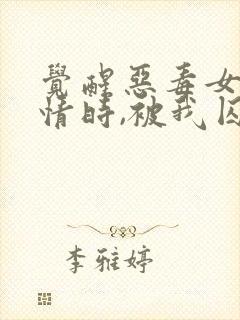 覺醒惡毒女
情時,被我囚
李雅婷